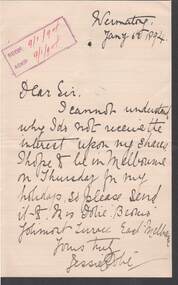 Jany 6th 1904
9/1/04
9/1/04
Dear Sir.
I cannot understand
why I do not receive the
interest upon my shares
I hope to be in Melbourne
on Thursday for my
holidays, so please send
it to Mrs Dobie,
Terrace East Melb
Yours truly
Jessie Dobie